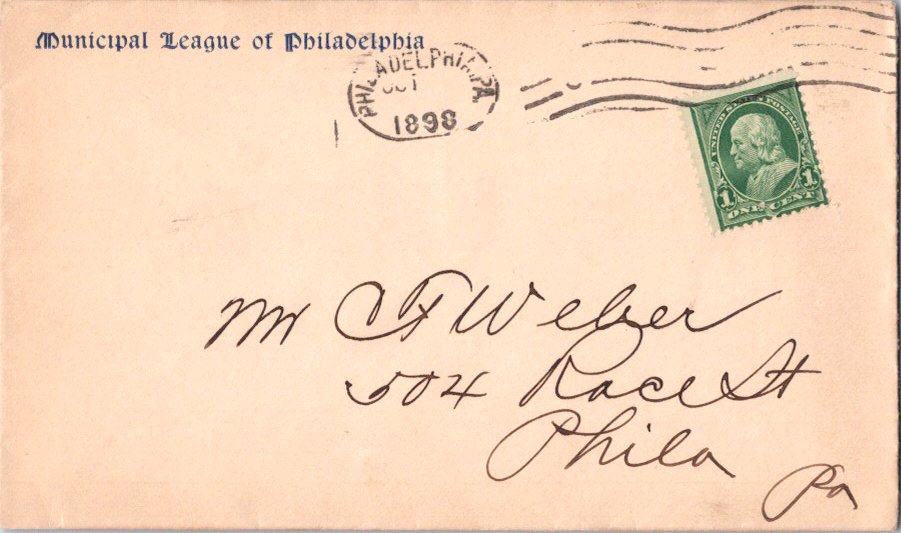 Municipal League of Philadelphia
PHILADELPHIA, PA.
OCT
1898
UNITED STATES POSTAGE
1 1
ONE CENT
Mr C F Weber
504 Race St
Phila
Pa